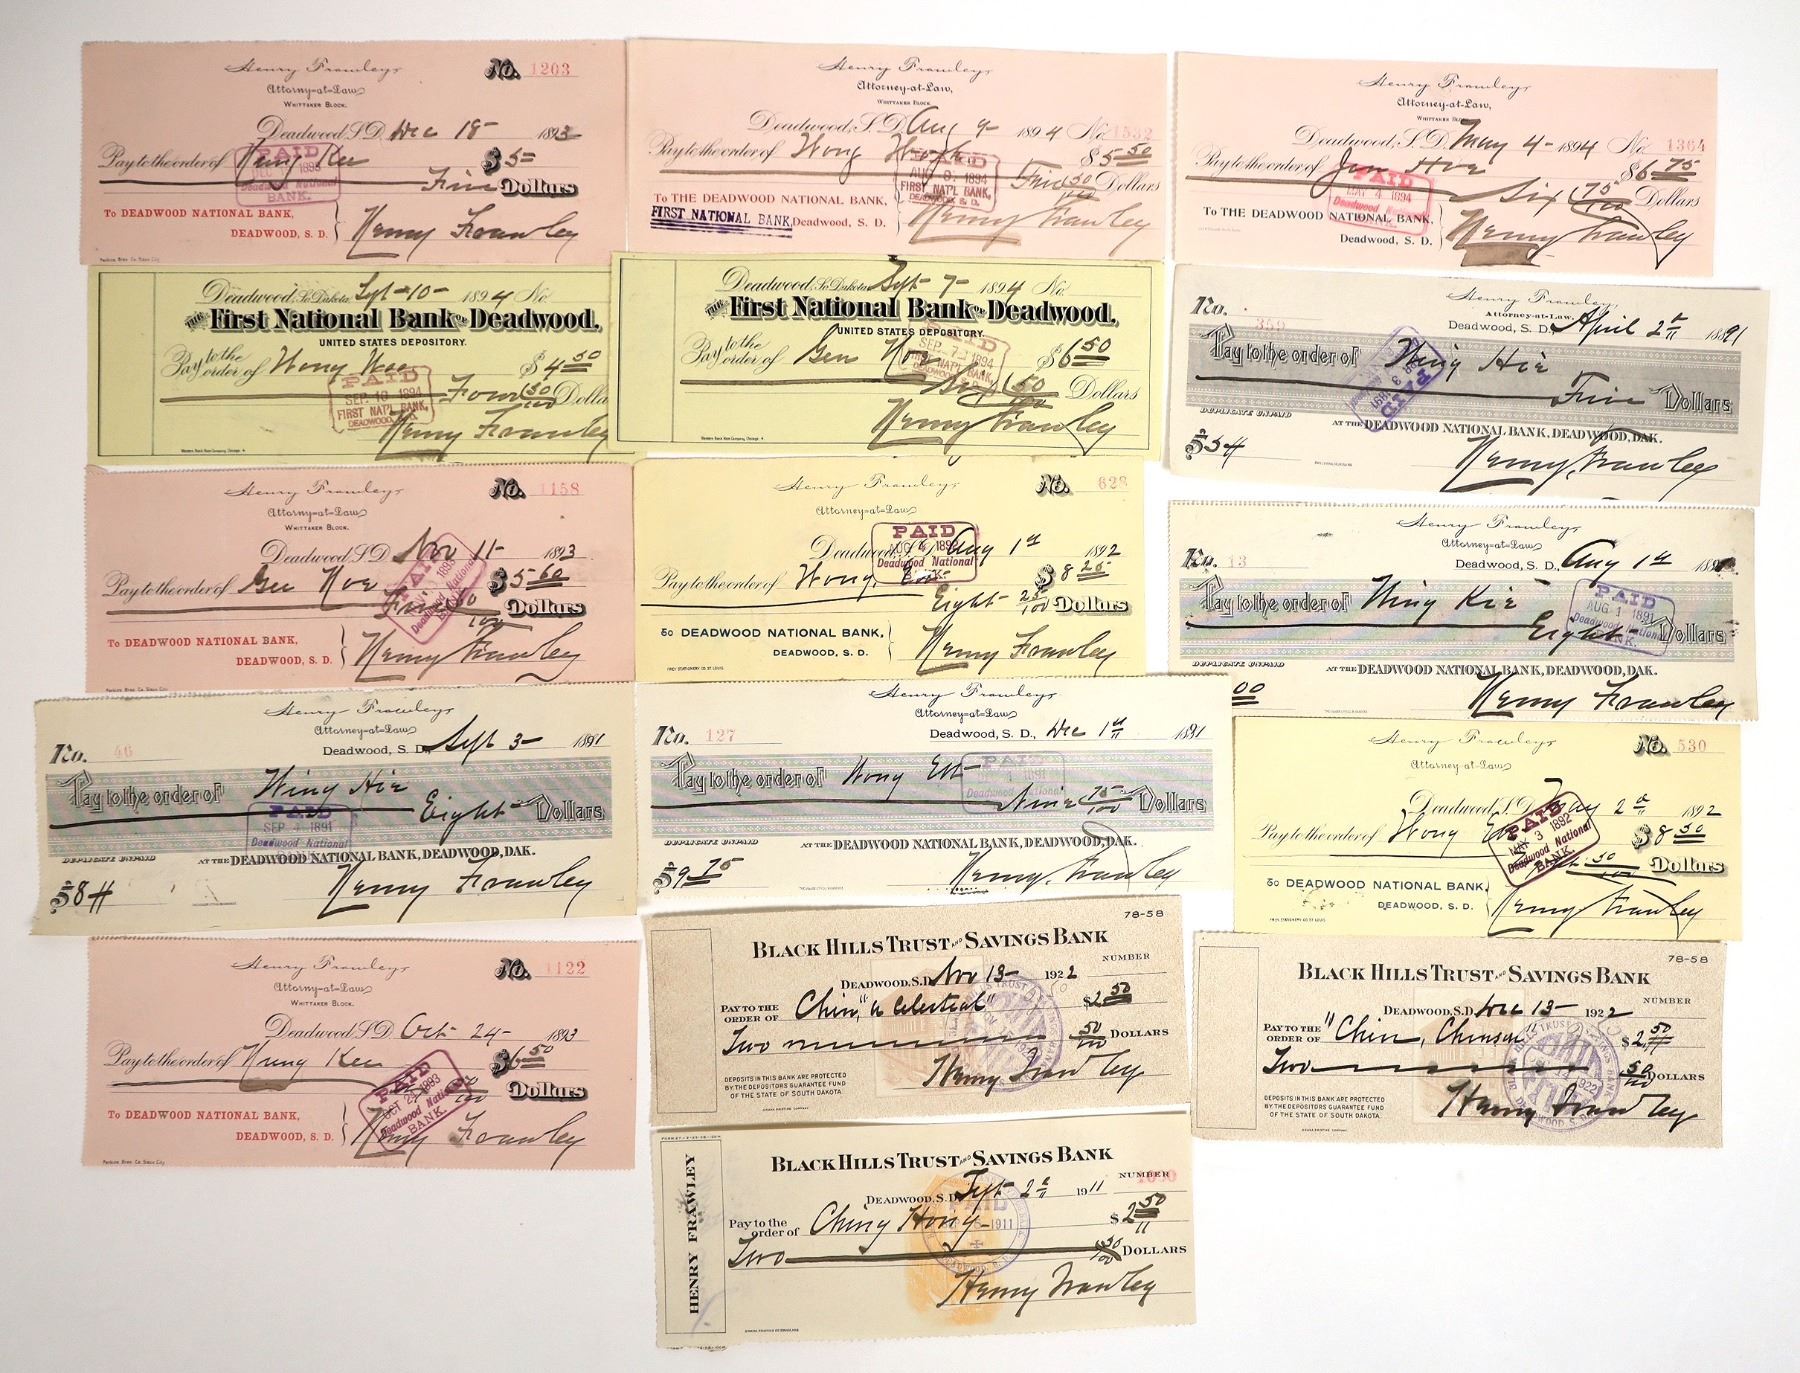 Henry Frawley,
No. 1203
Attorny-at-Law
WHITTAKER BLOCK.
Deadwood, S.D. Dec 18- 1893
Pay to the order of Hung Kee $5=
Five Dollars
To DEADWOOD NATIONAL BANK,
DEADWOOD, S. D.
Henry Frawley
Perkins Bros. Co. Sioux City
PAID
1893
Deadwood National
BANK.
Henry Frawley,
Attorney-at-Law,
WHITTAKER BLOCK
Deadwood, S.D. Aug 9- 1894 No. 1532
Pay to the order of Wong $5 50
Five 50/100 Dollars
To THE DEADWOOD NATIONAL BANK,
FIRST NATIONAL BANK Deadwood, S. D.
Henry Frawley
PAID
AUG 9 1894
FIRST NAT'L BANK,
DEADWOOD, S. D.
Henry Frawley,
Attorney-at-Law,
WHITTAKER BLOCK
Deadwood, S.D. May 4- 1894 No. 1364
Pay to the order of $6 75
Six 75/100 Dollars
To THE DEADWOOD NATIONAL BANK,
Deadwood, S. D.
Henry Frawley
PAID
MAY 4 1894
Deadwood
Deadwood, So. Dakota, Sept-10- 1894 No.
THE First National Bank OF Deadwood.
UNITED STATES DEPOSITORY.
Pay to the order of Wong $4 50
Four 50/100 Dolla
Henry Frawley
Western Bank Note Company, Chicago
PAID
SEP. 10 1894
FIRST NAT'L BANK,
DEADWOOD
Deadwood, So. Dakota, Sept 7- 1894 No.
THE First National Bank OF Deadwood.
UNITED STATES DEPOSITORY.
Pay to the order of Gen $6 50
Six 50/100 Dollars
Henry Frawley
Western Bank Note Company, Chicago
PAID
SEP 7 1894
FIRST NAT'L BANK,
DEADWOOD
Henry Frawley,
Attorney-at-Law,
No. 359
Deadwood, S. D., April 2d 1891
Pay to the order of Wing Hie
Five Dollars
DUPLICATE UNPAID
AT THE DEADWOOD NATIONAL BANK, DEADWOOD, DAK.
$5
Henry Frawley
PAID
Henry Frawley,
No. 1158
Attorny-at-Law
WHITTAKER BLOCK.
Deadwood, S.D. Nov 11- 1893
Pay to the order of Gee $5 60
Five 60/100 Dollars
To DEADWOOD NATIONAL BANK,
DEADWOOD, S. D.
Henry Frawley
Perkins Bros. Co. Sioux City
1893
Deadwood National
Henry Frawley,
No. 623
Attorney-at-Law
Deadwood, S.D. Aug 1st 1892
Pay to the order of Wong $8 25
Eight 25/100 Dollars
To DEADWOOD NATIONAL BANK,
DEADWOOD, S. D.
Henry Frawley
PAID
AUG 4 1892
Deadwood National
Henry Frawley,
Attorney-at-Law
No. 13
Deadwood, S. D., Aug 1st 1891
Pay to the order of Wing Kie
Eight Dollars
DUPLICATE UNPAID
AT THE DEADWOOD NATIONAL BANK, DEADWOOD, DAK.
00
Henry Frawley
PAID
AUG 1 1891
Deadwood National
BANK.
Henry Frawley,
Attorney-at-Law
No. 46
Deadwood, S. D., Sept 3- 1891
Pay to the order of Wing Hie
Eight Dollars
DUPLICATE UNPAID
AT THE DEADWOOD NATIONAL BANK, DEADWOOD, DAK.
$8
Henry Frawley
PAID
SEP 1891
Deadwood National
Henry Frawley,
Attorney-at-Law
No. 127
Deadwood, S. D., Dec 1st 1891
Pay to the order of Wong
Nine 75/100 Dollars
DUPLICATE UNPAID
AT THE DEADWOOD NATIONAL BANK, DEADWOOD, DAK.
$9 75
Henry Frawley
PAID
1891
Deadwood National
Henry Frawley,
No. 530
Attorney-at-Law
Deadwood, S.D. May 2d 1892
Pay to the order of Wong $8 50
50/100 Dollars
To DEADWOOD NATIONAL BANK,
DEADWOOD, S. D.
Henry Frawley
PAID
MAY 3 1892
Deadwood National
BANK.
Henry Frawley,
No. 1122
Attorny-at-Law
WHITTAKER BLOCK.
Deadwood, S.D. Oct- 24- 1893
Pay to the order of Hung Kee $6 50
Dollars
To DEADWOOD NATIONAL BANK,
DEADWOOD, S. D.
Henry Frawley
Perkins Bros. Co. Sioux City
PAID
OCT 1893
Deadwood National
BANK.
78-58
BLACK HILLS TRUST AND SAVINGS BANK
NUMBER
DEADWOOD, S.D. Nov 13- 1922
PAY TO THE ORDER OF Chin, "a Celestial" $2 50
Two 50/100 DOLLARS
Henry Frawley
DEPOSITS IN THIS BANK ARE PROTECTED
BY THE DEPOSITORS GUARANTEE FUND
OF THE STATE OF SOUTH DAKOTA.
78-58
BLACK HILLS TRUST AND SAVINGS BANK
NUMBER
DEADWOOD, S.D. Dec 13- 1922
PAY TO THE ORDER OF "Chin, Chinson" $2 50
Two 50/100 DOLLARS
Henry Frawley
DEPOSITS IN THIS BANK ARE PROTECTED
BY THE DEPOSITORS GUARANTEE FUND
OF THE STATE OF SOUTH DAKOTA.
HENRY FRAWLEY
BLACK HILLS TRUST AND SAVINGS BANK
NUMBER
DEADWOOD, S.D. Sept 2d 1911
Pay to the order of Ching Hong $2 50
Two 50/100 DOLLARS
Henry Frawley
PAID
1911
DEADWOOD, S. D.